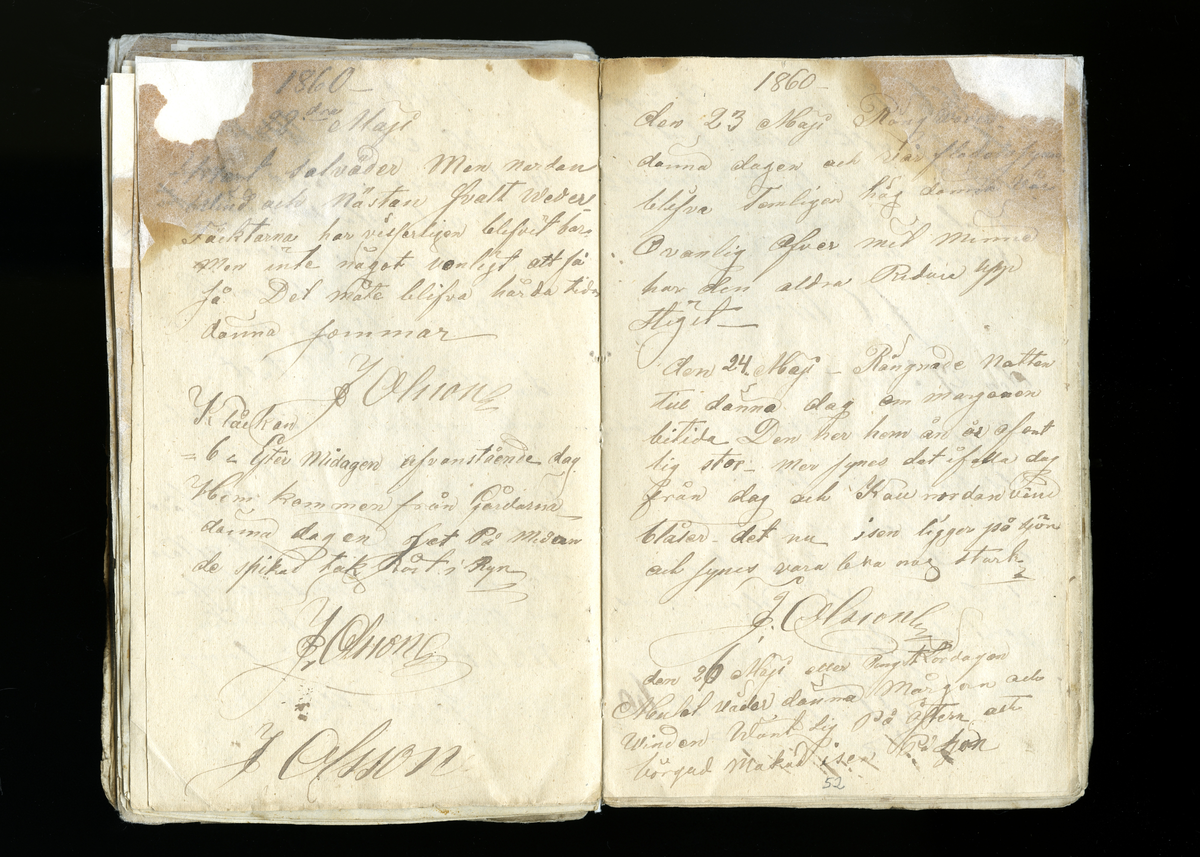 1860 –
22 dra Maji
solväder Men nordan
vind och Nästan Qvalt weder
Täckterna har visserligen blefvit bar
Men inte något venligt att få
så Det måte blifva hårda tider
danna sommar
J Olsson
Klåckan
= 6 Efter Midagen ofvanstående dag
Hem kommen från Gårdarna
danna dagen
de spikat tak i Ryn
J. Olsson
J Olsson
1860 –
den 23 Maji
danna dagen och
blifva Temligen hög danna
Ovanlig Öfver mit Minne
har den aldra Redare upp
stigit –
den 24. Maji – Rångnade Natten
till danna dag om margonen
bitida Den her hem ån är ofant
lig stor – mer synes det åfalla dag
från dag och Kall nordan vind
blåser – det nu isen ligger på sjön
och synes vara leka nog stark
J. Olsson
den 26 Maji eller Pingst Lördagen
Mulet väder danna Mårgon och
Winden Wänt sig På östern och
börgad Makad isen På sjön
52